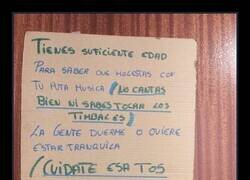 TIENES SUFICIENTE EDAD
PARA SABER QUE MOLESTAS CON
TU PUTA MUSICA (NO CANTAS
BIEN NI SABES TOCAR LOS
TIMBALES)
LA GENTE DUERME O QUIERE
ESTAR TRANQUILA
¡CUIDATE ESA TOS